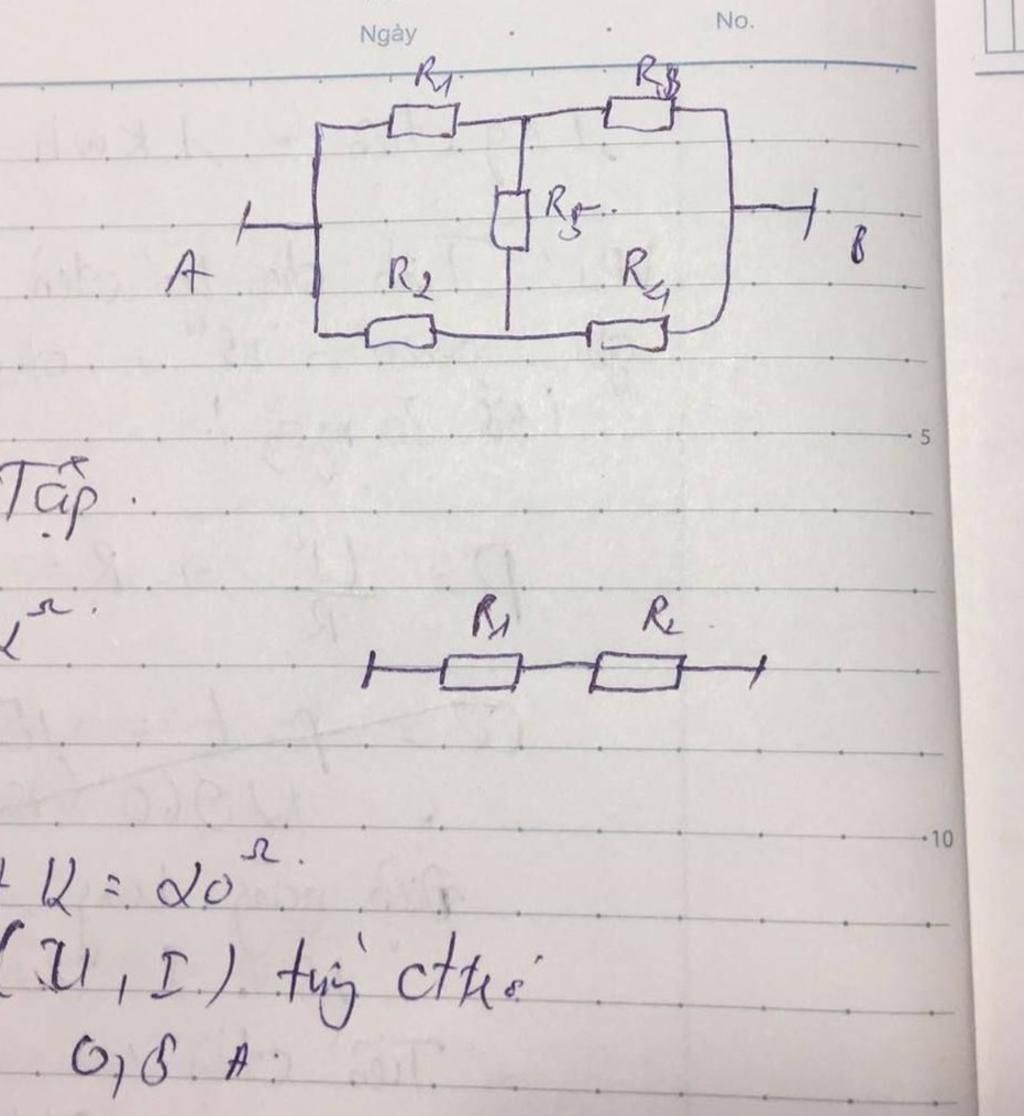 Ngày No.
R1 R3
R5
A R2 R4 B
5
Tập.
Ω.
R1 R2
10
12 = 20 Ω.
(U, I) tuỳ
A